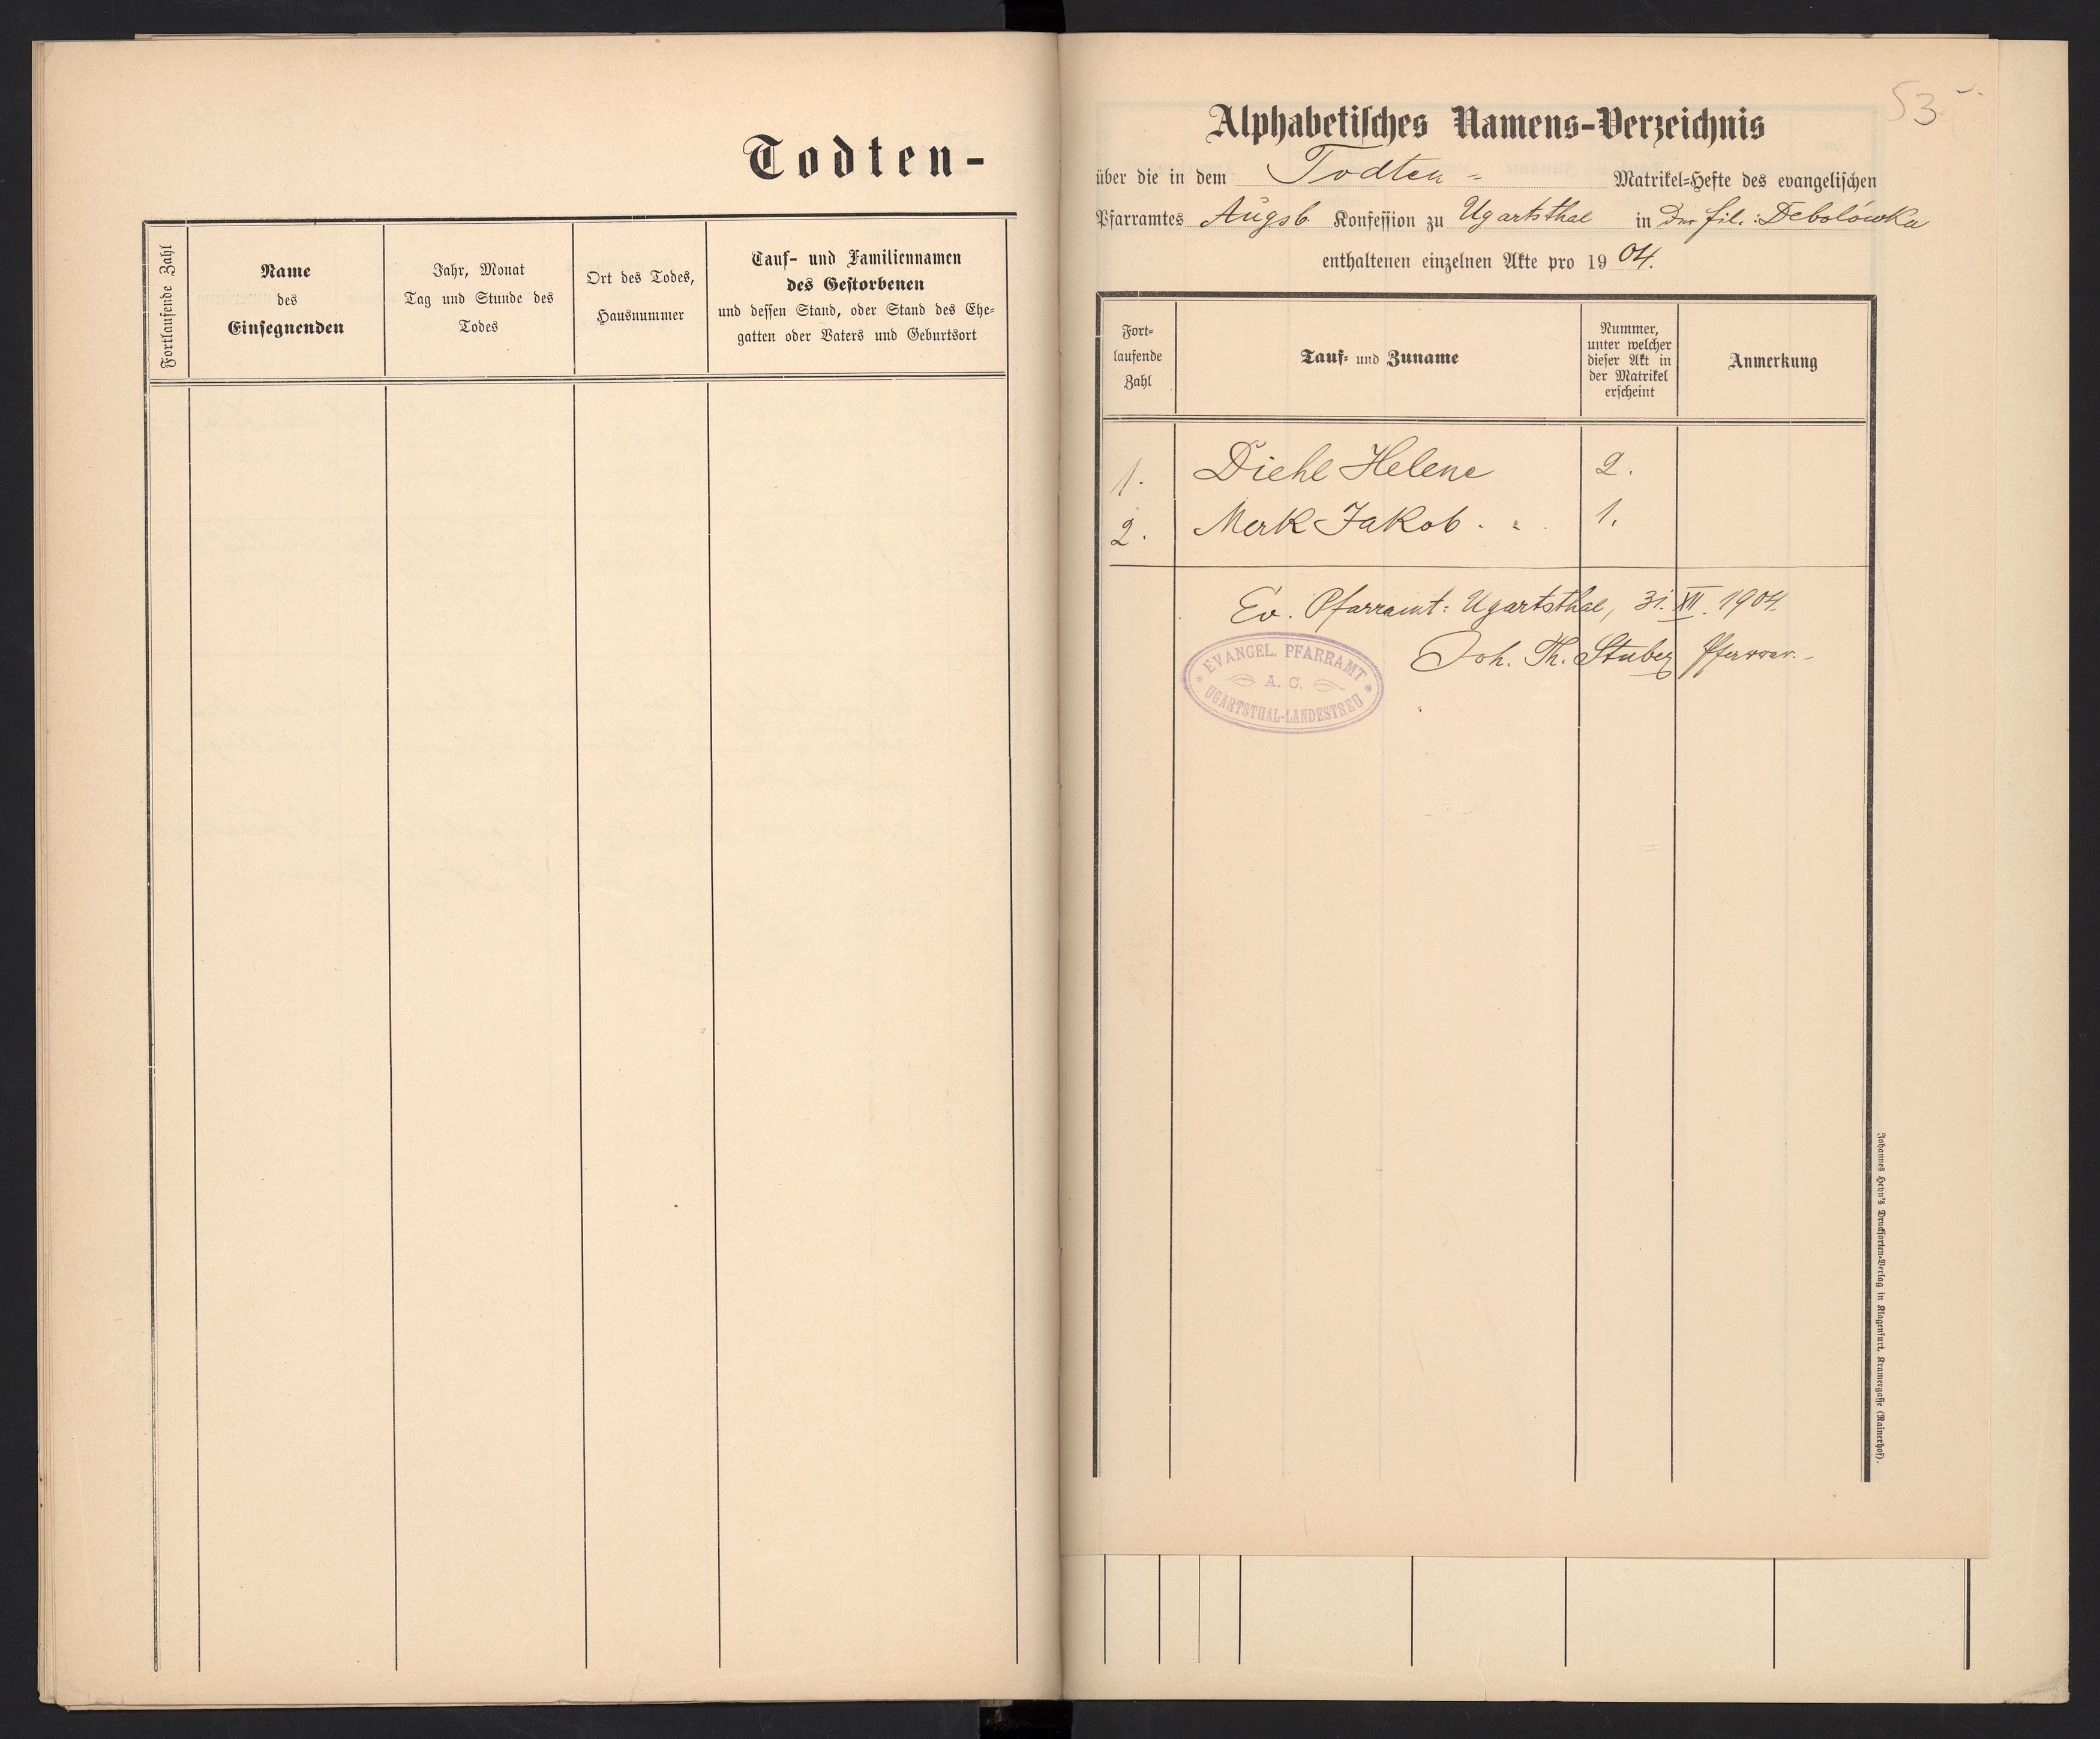 Todten-
Fortlaufende Zahl
Name
des
Einsegnenden
Jahr, Monat
Tag und Stunde des
Todes
Ort des Todes,
Hausnummer
Tauf- und Familiennamen
des Gestorbenen
und dessen Stand, oder Stand des Ehe-
gatten oder Vaters und Geburtsort
53
Alphabetisches Namens-Verzeichnis
über die in dem Todten- Matrikel-Hefte des evangelischen
Pfarramtes Augsb Konfession zu Ugartsthal in der fil.: Debolówka
enthaltenen einzelnen Akte pro 1904.
Fort-
laufende
Zahl
Tauf- und Zuname
Nummer,
unter welcher
dieser Akt in
der Matrikel
erscheint
Anmerkung
1. Diehl Helene 2.
2. Merk Jakob 1.
Ev. Pfarramt: Ugartsthal, 31. XII. 1904.
Joh. Th. Stuber Pfarrer.
EVANGEL. PFARRAMT
A. C.
UGARTSTHAL-LANDESTREU
Johannes Heyn's Drucksorten-Verlag in Klagenfurt, Kramergasse (Rainerhof).